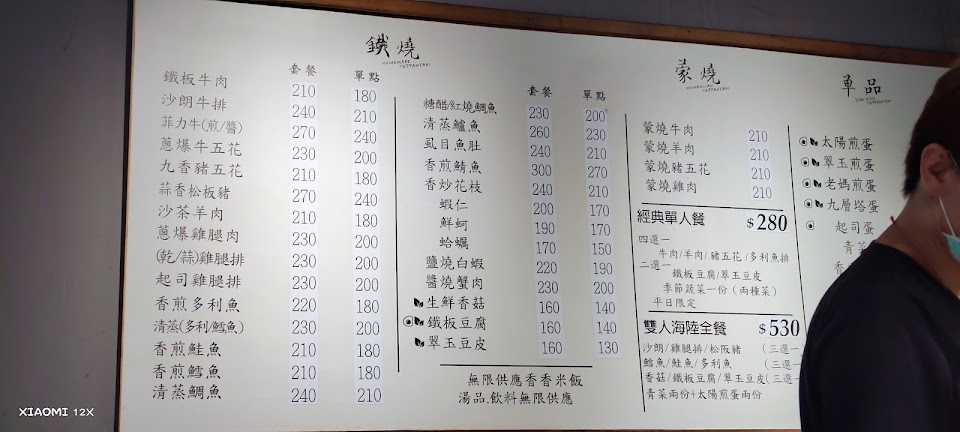 鐵燒
HANDMADE
TEPPANYAKI
套餐 單點
鐵板牛肉 210 180
沙朗牛排 240 210
菲力牛(煎/醬) 270 240
蔥爆牛五花 230 200
九香豬五花 210 180
蒜香松板豬 270 240
沙茶羊肉 210 180
蔥爆雞腿肉 230 200
(乾/蒜)雞腿排 230 200
起司雞腿排 230 200
香煎多利魚 220 180
清蒸(多利/鱈魚) 230 200
香煎鮭魚 210 180
香煎鱈魚 210 180
清蒸鯛魚 240 210
套餐 單點
糖醋/紅燒鯛魚 230 200
清蒸鱸魚 260 230
虱目魚肚 240 210
香煎鯖魚 300 270
香炒花枝 240 210
蝦仁 200 170
鮮蚵 190 170
蛤蠣 170 150
鹽燒白蝦 220 190
醬燒蟹肉 230 200
生鮮香菇 160 140
鐵板豆腐 160 140
翠玉豆皮 160 130
無限供應香香米飯
湯品.飲料無限供應
蒙燒
MONGOLIAN
TEPPANYAKI
蒙燒牛肉 210
蒙燒羊肉 210
蒙燒豬五花 210
蒙燒雞肉 210
經典單人餐 $280
四選一
牛肉/羊肉/豬五花/多利魚排
二選一
鐵板豆腐/翠玉豆皮
季節蔬菜一份(兩種菜)
平日限定
雙人海陸全餐 $530
沙朗/雞腿排/松阪豬 (三選一
鱈魚/鮭魚/多利魚 (三選一
香菇/鐵板豆腐/翠玉豆皮(三選一
青菜兩份+太陽煎蛋兩份
單品
SIDE DISH
TEPPANYAKI
太陽煎蛋
翠玉煎蛋
老媽煎蛋
九層塔蛋
起司蛋
青菜
香
XIAOMI 12X